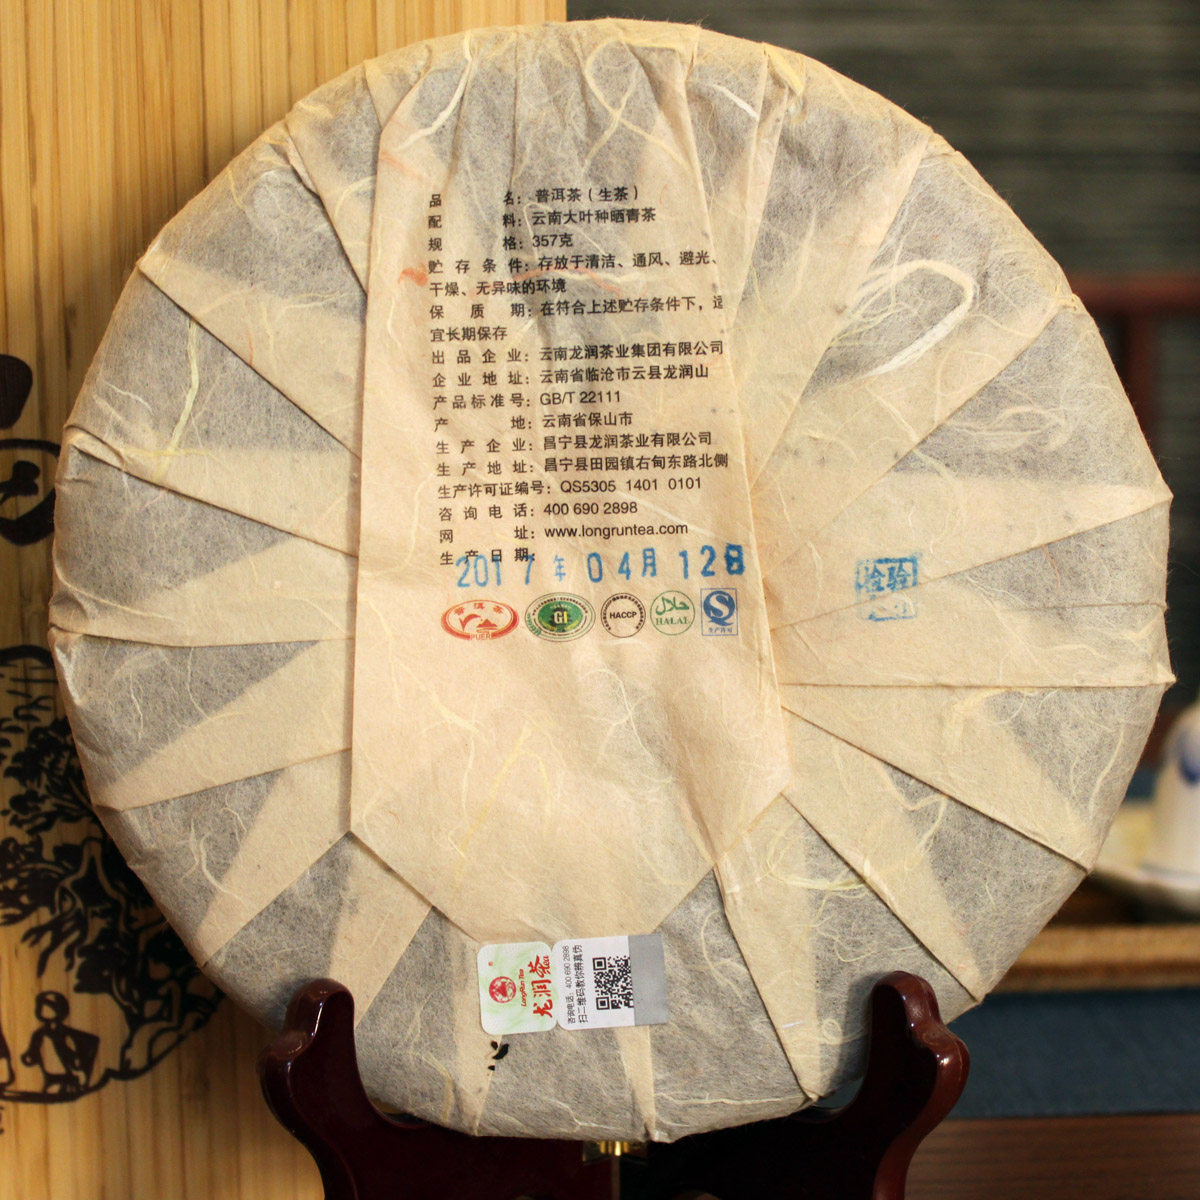 品 名：普洱茶（生茶）
配 料：云南大叶种晒青茶
规 格：357克
贮 存 条 件：存放于清洁、通风、避光、
干燥、无异味的环境
保 质 期：在符合上述贮存条件下，适
宜长期保存
出 品 企 业：云南龙润茶业集团有限公司
企 业 地 址：云南省临沧市云县龙润山
产品标准号：GB/T 22111
产 地：云南省保山市
生 产 企 业：昌宁县龙润茶业有限公司
生 产 地 址：昌宁县田园镇右甸东路北侧
生产许可证编号：QS5305 1401 0101
咨 询 电 话：400 690 2898
网 址：www.longruntea.com
生 产 日 期：
2017年04月12日
检验
普洱茶
PUER
GI
HACCP
حلال
HALAL
S
生产许可
龙润茶
Tea
LongRun Tea
咨询电话：400 690 2898
扫二维码教你辨真伪